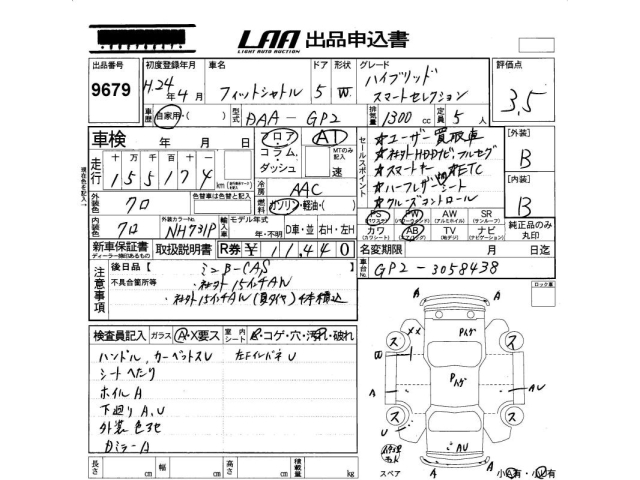 LAA 出品申込書
LIGHT AUTO AUCTION
出品番号 初度登録年月 車名 ドア 形状 グレード 評価点
9679 H.24年4月 フィットシャトル 5 W ハイブリッド
スマートセレクション 3.5
車歴 自家用・( ) 型式 DAA-GP2 排気量 1300 cc 定員 5 人
車検 年 月 日 フロア AT セールスポイント ★ユーザー買取車 [外装]
コラム MTのみ記入 ★社外HDDナビ,フルセグ B
走行 十万 万 千 百 十 ダッシュ 速 ★スマートキー ★ETC
155174 km ★ハーフレザーシート [内装]
冷房 AAC ★クルーズコントロール B
外装色 クロ 色替車は色替と記入 燃料 ガソリン・軽油・( )
PS PW AW SR
(パワステ) (パワーウインドー) (アルミホイル) (サンルーフ)
内装色 クロ 外装カラーNo. NH731P 輸入車 モデル年式 年・不明 D車・並 右H・左H
カワ AB TV ナビ 純正品のみ丸印
(カワシート) (エアバッグ) (地デジ) (ナビゲーション)
新車保証書 取扱説明書 R券 ¥ 11,440 名変期限 月 日迄
ディーラー捺印あるもの
車台No. GP2-3058438
注意事項 後日品【 ミニB-CAS
不具合箇所等 ・社外15インチAW
・社外15インチAW(夏タイヤ)4本積込
ロック車
検査員記入 ガラス A・X要ス 室内シート ・コゲ・穴・汚れ・破れ
ハンドル,カーペットスU 左Fインパネ U
シートへたり
ホイルA
下廻りA,U
外装色3セ
DミラーA
長さ cm 幅 cm 高さ cm 積載量 kg
A A
XX Pハゲ
ス ス
Pハゲ
A A AU
ス ス
U
AU
スペア A A 小A有・小U有